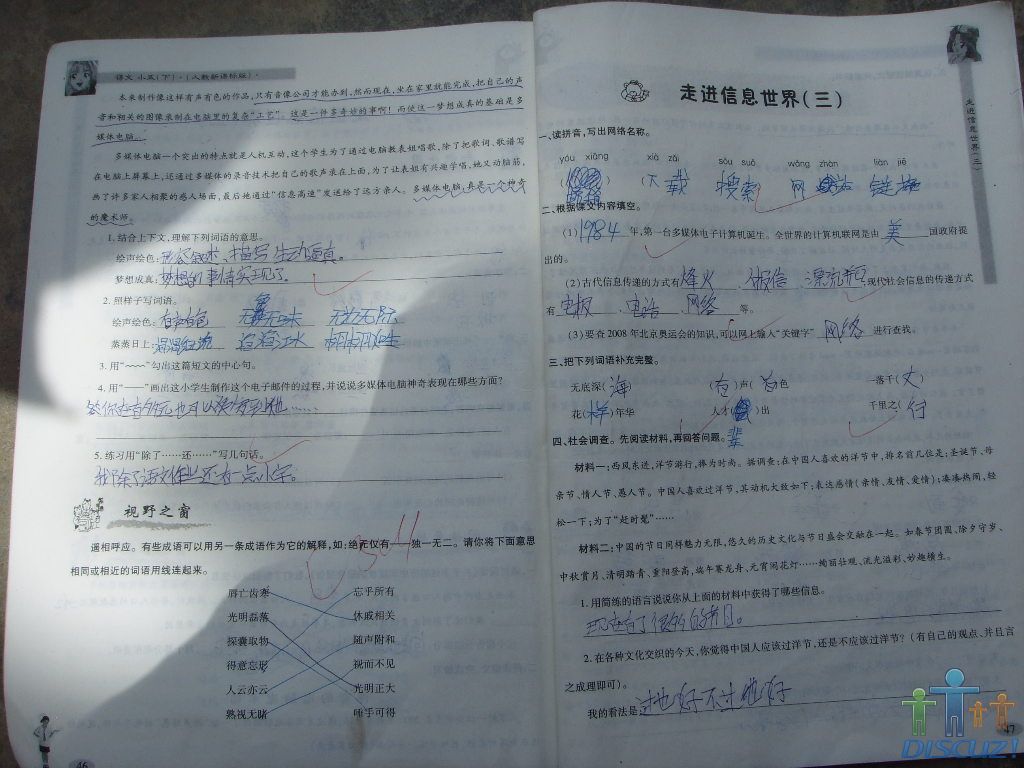 语文 小五(下)·(人教新课标版)·
本来制作像这样有声有色的作品,只有音像公司才能办到,然而现在,坐在家里就能完成,把自己的声
音和相关的图像录制在电脑里的复杂“工艺”。这是一件多奇妙的事啊!而使这一梦想成真的基础是多
媒体电脑。
多媒体电脑一个突出的特点就是人机互动,这个学生为了通过电脑教表姐唱歌,除了把歌词、歌谱写
在电脑上屏幕上,还通过多媒体的录音技术把自己的歌声录在上面,为了让表姐有兴趣学唱,她又动脑筋,
画了许多家人相聚的感人场面,最后她通过“信息高速”发送给了远方亲人。多媒体电脑,真是一个神奇
的魔术师。
1. 结合上下文,理解下列词语的意思。
绘声绘色:形容叙述、描写生动逼真。
梦想成真:梦想的事情实现了。
2. 照样子写词语。
绘声绘色:有声有色 无影无踪 无边无际
蒸蒸日上:滔滔江水
3. 用“~~~”勾出这篇短文的中心句。
4. 用“——”画出这个小学生制作这个电子邮件的过程,并说说多媒体电脑神奇表现在哪些方面?
5. 练习用“除了……还……”写几句话。
我除了语文作业还有一点小字。
视野之窗
遥相呼应。有些成语可以用另一条成语作为它的解释,如:绝无仅有——独一无二。请你将下面意思
相同或相近的词语用线连起来。
唇亡齿寒 忘乎所有
光明磊落 休戚相关
探囊取物 随声附和
得意忘形 视而不见
人云亦云 光明正大
熟视无睹 唾手可得
46
走进信息世界(三)
走进信息世界(三)
一、读拼音,写出网络名称。
yóu xiāng xià zǎi sōu suǒ wǎng zhàn liàn jiē
(邮箱 (下载 搜索 网站 链接
二、根据课文内容填空。
(1)1984年,第一台多媒体电子计算机诞生。全世界的计算机联网是由 美 国政府提
出的。
(2)古代信息传递的方式有烽火、报信、漂流瓶,现代社会信息的传递方式
有电报、电话、网络 等。
(3)要查2008年北京奥运会的知识,可以网上输入“关键字” 网络 进行查找。
三、把下列词语补充完整。
无底深(海) (有)声(有)色 一落千(丈)
花(样)年华 人才(辈)出 千里之(行)
四、社会调查。先阅读材料,再回答问题。
材料一:西风东进,洋节游行,捧为时尚。据调查:在中国人喜欢的洋节中,排名前几位是:圣诞节、母
亲节、情人节、愚人节。中国人喜欢过洋节,其动机大致如下:表达感情(亲情、友情、爱情);凑凑热闹,轻
松一下;为了“赶时髦”……
材料二:中国的节日同样魅力无限,悠久的历史文化与节日盛会交融在一起。如春节团圆、除夕守岁、
中秋赏月、清明踏青、重阳登高,端午赛龙舟,元宵闹花灯……绚丽壮观、流光溢彩,妙趣横生。
1. 用简练的语言说说你从上面的材料中获得了哪些信息。
现在有了很多的节日。
2. 在各种文化交织的今天,你觉得中国人应该过洋节,还是不应该过洋节?(有自己的观点、并且言
之成理即可)。
我的看法是过也好不过也好
47
DISCUZ!